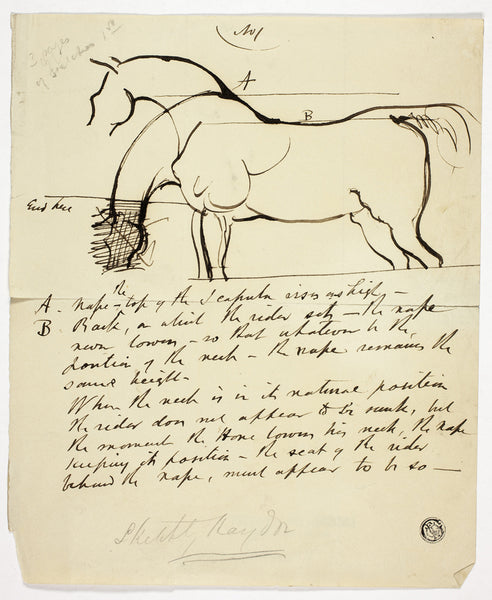 No 1
3 pages
of sketches 1st
A
B
End here
A. the nape - top of the Scapula rises as high -
B Back, on which the rider sits - the nape
never lowers - so that whatever be the
position of the neck - the nape remains the
same height -
When the neck is in its natural position
the rider does not appear to be sunk, but
the moment the Horse lowers his neck, the nape
keeping its position - the seat of the rider
behind the nape, must appear to be so -
Sketch by Haydon